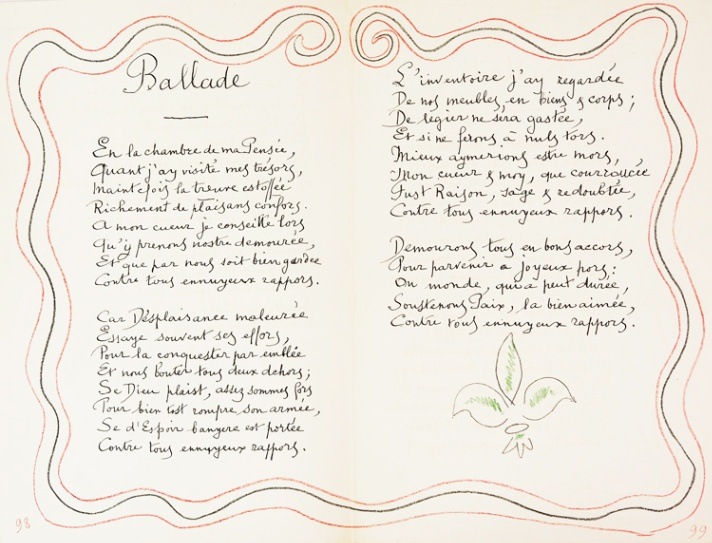 Ballade
En la chambre de ma Pensée,
Quant j'ay visité mes trésors,
Maintefois la treuve estoffée
Richement de plaisans confors.
A mon cueur je conseille lors
Qu'y prenons nostre demourée,
Et que par nous soit bien gardée
Contre tous ennuyeux rappors.
Car Desplaisance maleurée
Essaye souvent ses effors,
Pour la conquester par emblée
Et nous bouter tous deux dehors;
Se Dieu plaist, assez sommes fors
Pour bien tost rompre son armée,
Se d'Espoir banyere est portée
Contre tous ennuyeux rappors.
L'inventoire j'ay regardée
De nos meubles, en biens & corps;
De legier ne sera gastée,
Et si ne ferons à nuls tors.
Mieux aymerions estre mors,
Mon cueur & moy, que courroucée
Fust Raison, sage & redoubtée,
Contre tous ennuyeux rappors.
Demourons tous en bons accors,
Pour parvenir a joyeux pors:
On monde, qui a peut durée,
Soustenons Paix, la bien aimée,
Contre tous ennuyeux rappors.
98
99